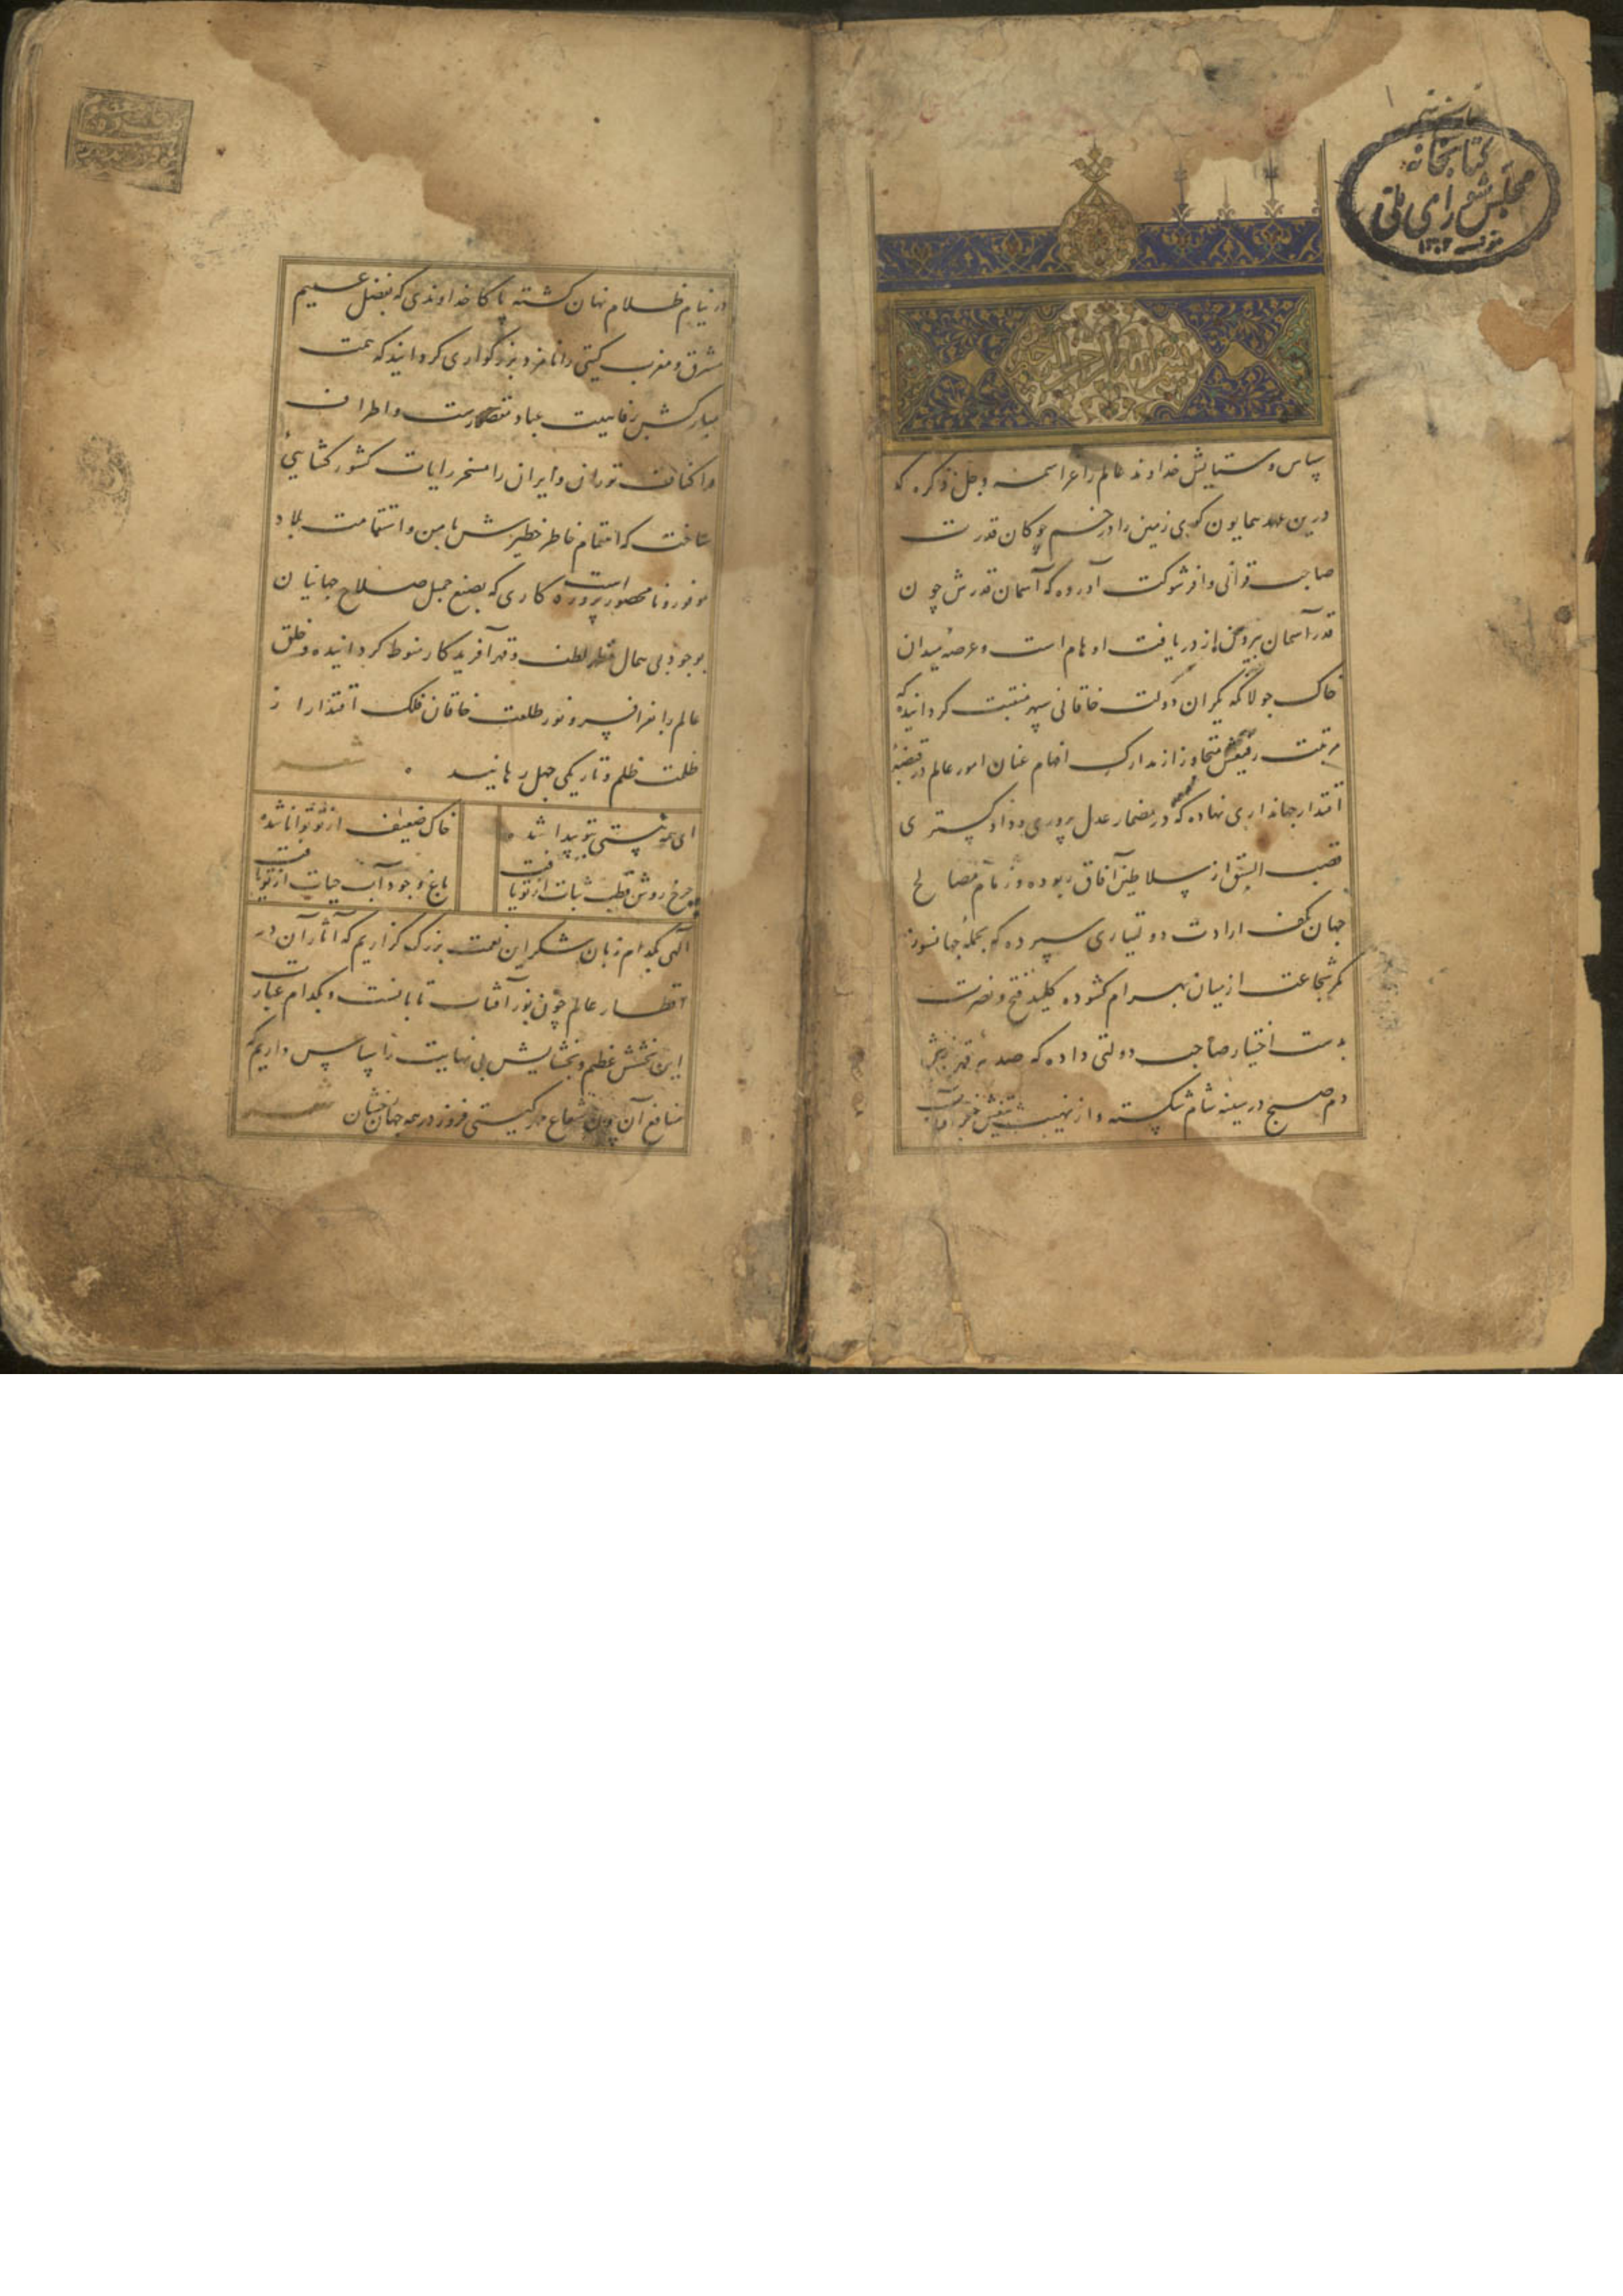 کتابخانه
مجلس شورای ملی
۱۳۰۲
بسم الله الرحمن الرحیم
سپاس و ستایش خداوند عالم را عز اسمه و جل ذکره که
درین عهد همایون کوی زمین را در خم چوکان قدرت
صاحب قرانی وافر شوکت آورده که آسمان قدرش چون
قدر آسمان بیرون از دریافت اوهام است و عرصه میدان
خاک جولانکه یکران دولت خاقانی سپهر منقبت کردانیده که
مرتبت رفیعش متجاوز از مدارک افهام عنان امور عالم در قبضهٔ
اقتدار جهانداری نهاده که در مضمار عدل پروری و داد کستری
قصب السبق از سلاطین آفاق ربوده و زمام مصالح
جهان بکف ارادت دو تیاری سپرده که بحملهٔ جهانسوز
کمر شجاعت از میان بهرام کشوده کلید فتح و نصرت
بدست اختیار صاحب دولتی داده که صدمهٔ قهرش
دم صبح در سینه شام شکسته و از نهیب تیغش خنجر آفتاب
در نیام ظلام نهان کشته پاکا خداوندی که بفضل عمیم
مشرق و مغرب کیتی را نامزد بزرکواری کردانید که همت
مبارکش بر رفاهیت عباد مقصورست و اطراف
و اکناف توران و ایران را مسخر رایات کشورکشایی
ساخت که اهتمام خاطر خطیرش بامن و استقامت بلاد
موفور و نامحصور است پروردکاری که بصنع جمیل صلاح جهانیان
بوجود بی همال مظهر لطف و قهر آفریدکار منوط کردانیده و خلق
عالم را بفر افسر و نور طلعت خاقان فلک اقتدار از
ظلمت ظلم و تاریکی جهل رهانید شعر
ای همه هستی ز تو پیدا شده خاک ضعیف از تو توانا شده
چرخ روش قطب ثبات از تو یافت باغ وجود آب حیات از تو یافت
الهی بکدام زبان شکر این نعمت بزرک کزاریم که آثار آن در
اقطار عالم چون نور آفتاب تابانست و بکدام عبارت
این بخشش عظیم و بخشایش بی نهایت را سپاس داریم که
منافع آن چون شعاع مهر کیتی فروز در همه جهان رخشان شعر